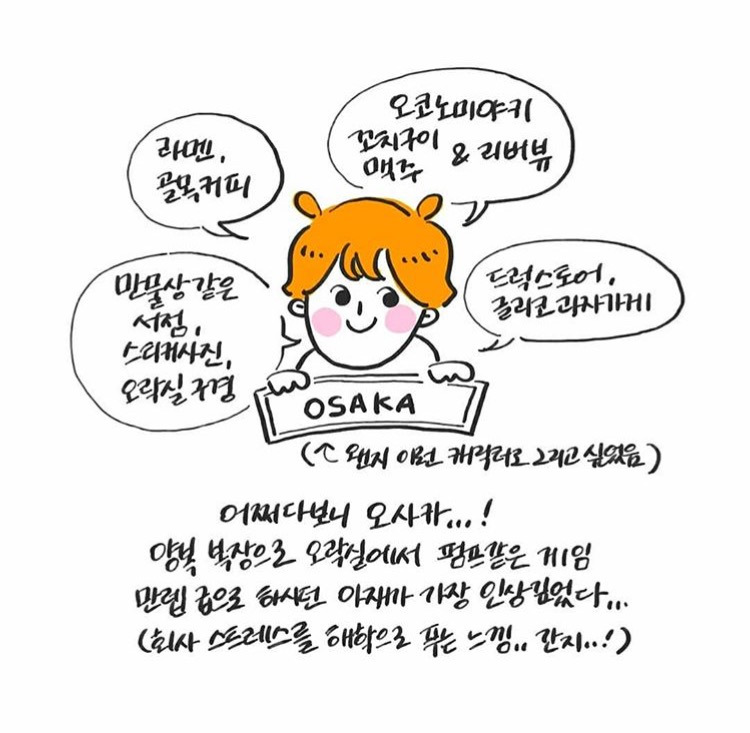 라멘,
골목커피
오코노미야키
꼬치구이
맥주 & 리버뷰
만물상 같은
서점,
스티커사진,
오락실 구경
드럭스토어,
글리코 과자가게
OSAKA
(↑ 왠지 이런 캐릭터로 그리고 싶었음)
어쩌다보니 오사카...!
양복 복장으로 오락실에서 펌프같은 게임
만렙 급으로 하시던 아재가 가장 인상깊었다...
(회사 스트레스를 해학으로 푸는 느낌.. 간지..!)